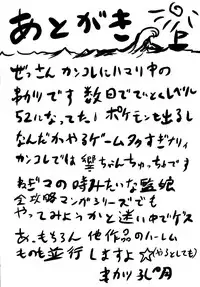 あとがき
ぜっさんカンコレにハマり中の
まかりです 数日でていとくレベル
52になってた！ポケモンも出るし
なんだかやるゲーム多すぎナリィ
カンコレでは響ちゃんちゅっちょです
ねぎマの時みたいな艦娘
全攻略マンガシリーズでも
やってみようかと迷い中でゲス
あ、もちろん他作品のハーレム
ものも並行しますよ☆(やるとしても)
まかり